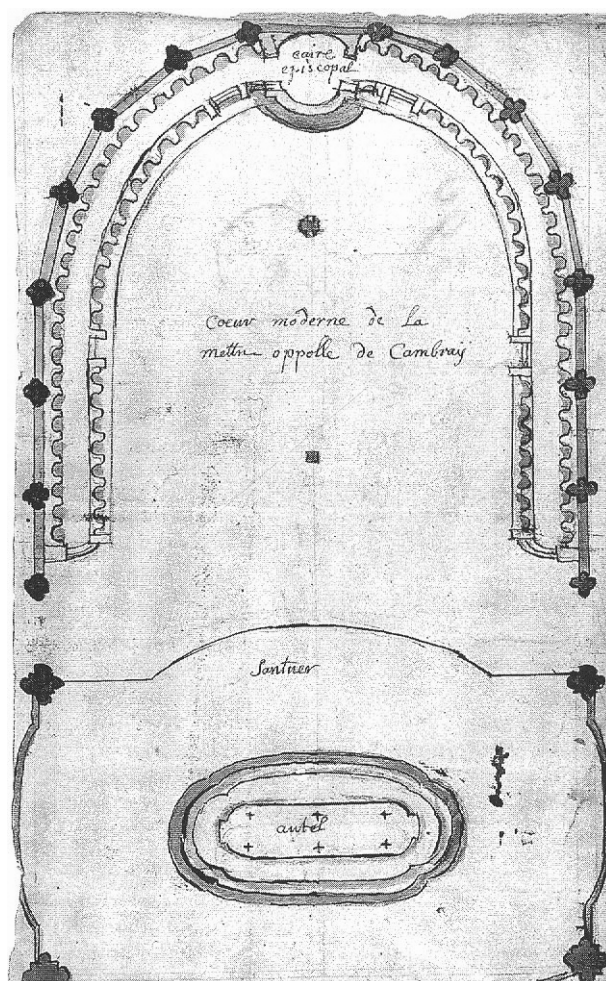 caire
episcopal
Coeur moderne de La
mettre oppolle de Cambray
Santuer
autel